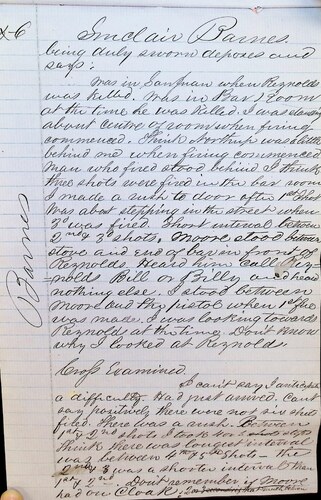 x-6
Sinclair Barnes.
being duly sworn deposes and
says:
Was in Sanpman when Reynolds
was killed. Was in Bar Room
at the time he was killed. I was standing
about centre of room when firing
commenced. Think Northup was a little
behind me when firing commenced
man who fired stood behind I think
three shots were fired in the bar room
I made a rush to door after 1st shot
Was about stepping in the street when
2d was fired. Short interval between
2nd & 3d shots. Moore stood between
stove and end of bar in front of
Reynolds. Heard call Rey-
nolds Bill or Billy and heard
nothing else. I stood between
Moore and the pistol when 1st fire
was made. I was looking towards
Reynolds at the time. Don't know
why I looked at Reynolds.
Barnes
Cross Examined.
I can't say I anticipated
a difficulty. Had just arrived. Cant
say positively there were not six shots
fired. There was a rush. Between
1st & 2nd shots I took
Think there was longest interval
was between 4th & 5th Shots – the
2nd & 3 was a shorter interval than
1st & 2nd. Don't remember if Moore
had on Cloak.